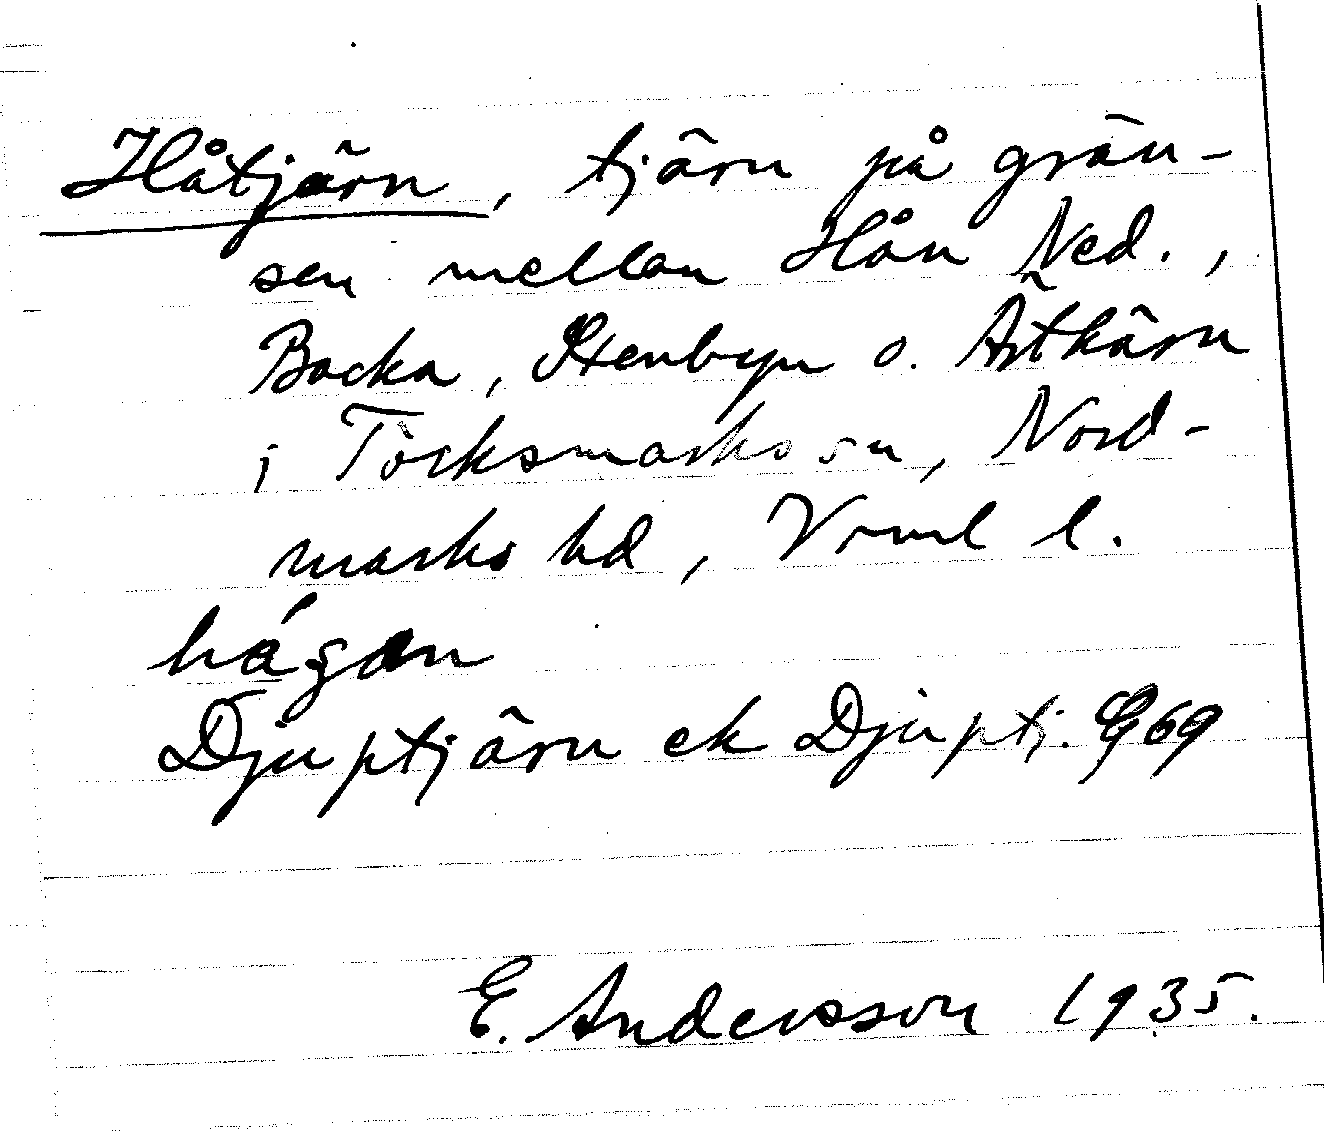 Håtjärn, tjärn på grän-
sen mellan Hån Ned.,
Backa, Stenbyn o. Ätkärn
i Töcksmarks sn, Nord-
marks hd, Vrml l.
hágan
Djuptjärn ek Djuptj. G 69
E. Andersson 1935.